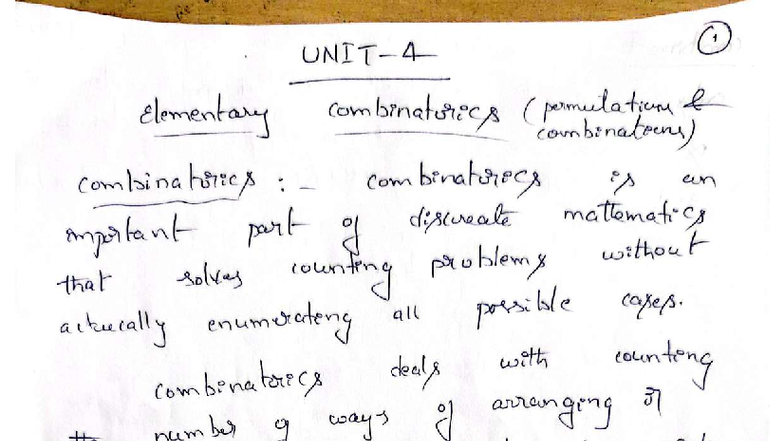 1
UNIT-4
Elementary combinatorics (permutations &
combinations)
combinatorics :- combinatorics is an
important part of discreate mathematics
that solves counting problems without
actucally enumerateng all possible cases.
combinatorics deals with counting
the number of ways of arranging or